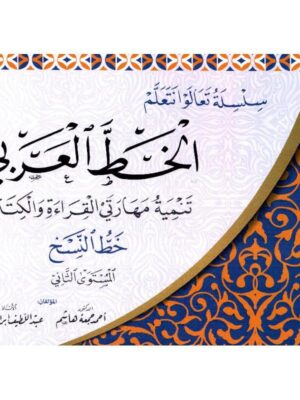 سِلْسِلَةُ تَعَالَوْا نَتَعَلَّمُ
الْخَطَّ الْعَرَبِيَّ
تَنْمِيَةُ مَهَارَتَيِ الْقِرَاءَةِ وَالْكِتَا
خَطُّ النَّسْخِ
الْمُسْتَوَى الثَّانِي
المؤلفان
الدكتور
أحمد جمعة هاشم
الأستاذ
عبد اللطيف